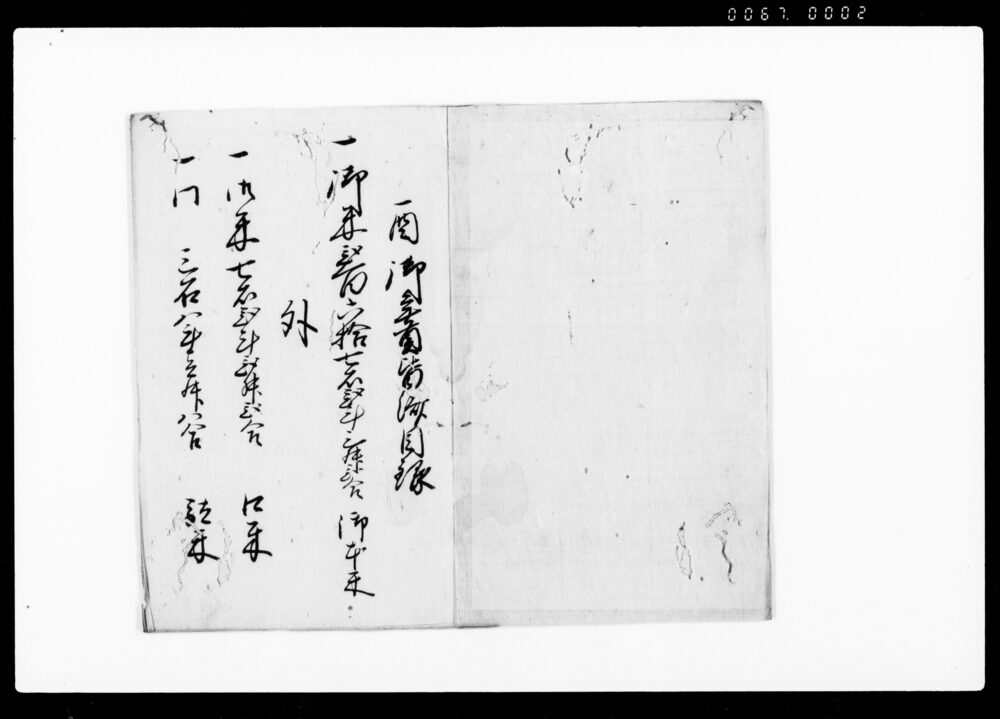 0067. 0002
酉御年貢皆済目録
一御米弐百六拾七石弐斗三升弐合 御本米
外
一御米七石弐斗弐升弐合 口米
一同 三石八斗五升八合 米